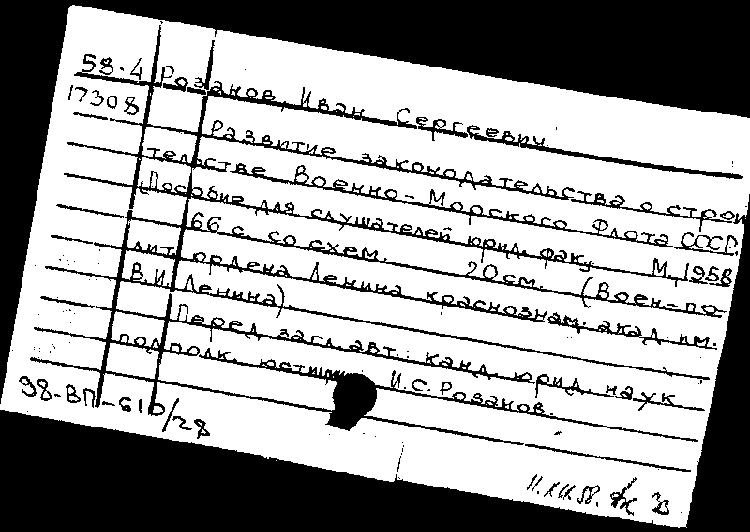 58-4 Розанов, Иван Сергеевич.
17308
Развитие законодательства о строи
тельстве Военно-Морского Флота СССР.
Пособие для слушателей юрид. фак. М., 1958
66 с. со схем. 20 см. (Воен-по-
лит. ордена Ленина краснознам. акад им.
В.И. Ленина)
Перед загл. авт.: канд. юрид. наук
подполк. юстиции И.С. Розанов.
98-ВП-610/28
11.XII.58.